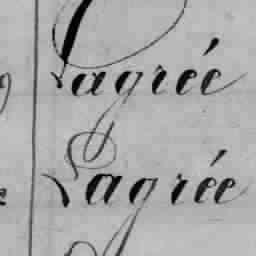 Lagrée
Lagrée